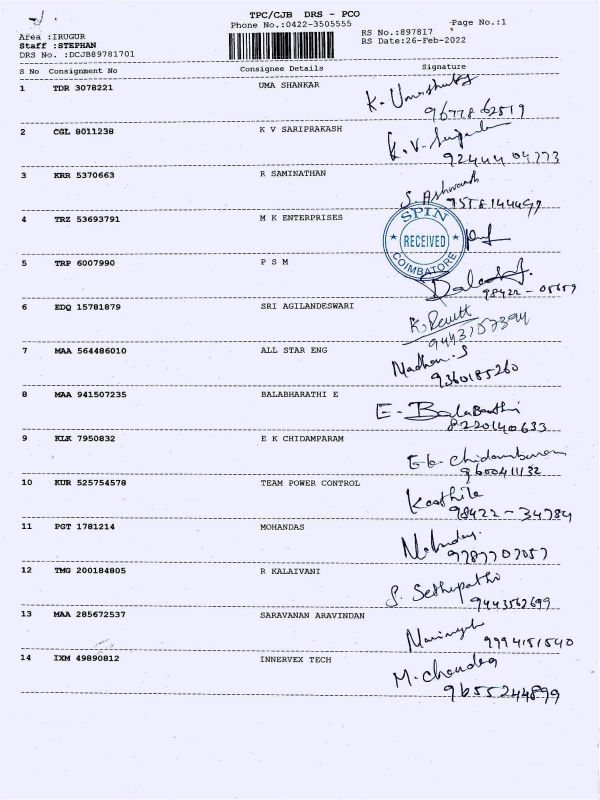 TPC/CJB DRS - PCO
Phone No.:0422-3505555
Page No.:1
Area :IRUGUR
RS No.:897817
Staff :STEPHAN
RS Date:26-Feb-2022
DRS No. :DCJB89781701
S No Consignment No Consignee Details Signature
1 TDR 3078221 UMA SHANKAR
K. Umashankar
9677862519
2 CGL 8011238 K V SARIPRAKASH
K.V.
92444 04773
3 KRR 5370663 R SAMINATHAN
S. Ashwanth
7558144499
4 TRZ 53693791 M K ENTERPRISES
SPIN
RECEIVED
COIMBATORE
5 TRP 6007990 P S M
98422-05659
6 EDQ 15781879 SRI AGILANDESWARI
9443757394
7 MAA 564486010 ALL STAR ENG
Madhan.S
9360185260
8 MAA 941507235 BALABHARATHI E
E. BalaBarathi
8220140633
9 KLK 7950832 E K CHIDAMPARAM
E.k. Chidambaram
9600411132
10 KUR 525754578 TEAM POWER CONTROL
98422-34784
11 PGT 1781214 MOHANDAS
Mohandas.
9787707057
12 TMG 200184805 R KALAIVANI
S. Sethupathi
9443562699
13 MAA 285672537 SARAVANAN ARAVINDAN
9994151540
14 IXM 49890812 INNERVEX TECH
M. Chandra
9655244899